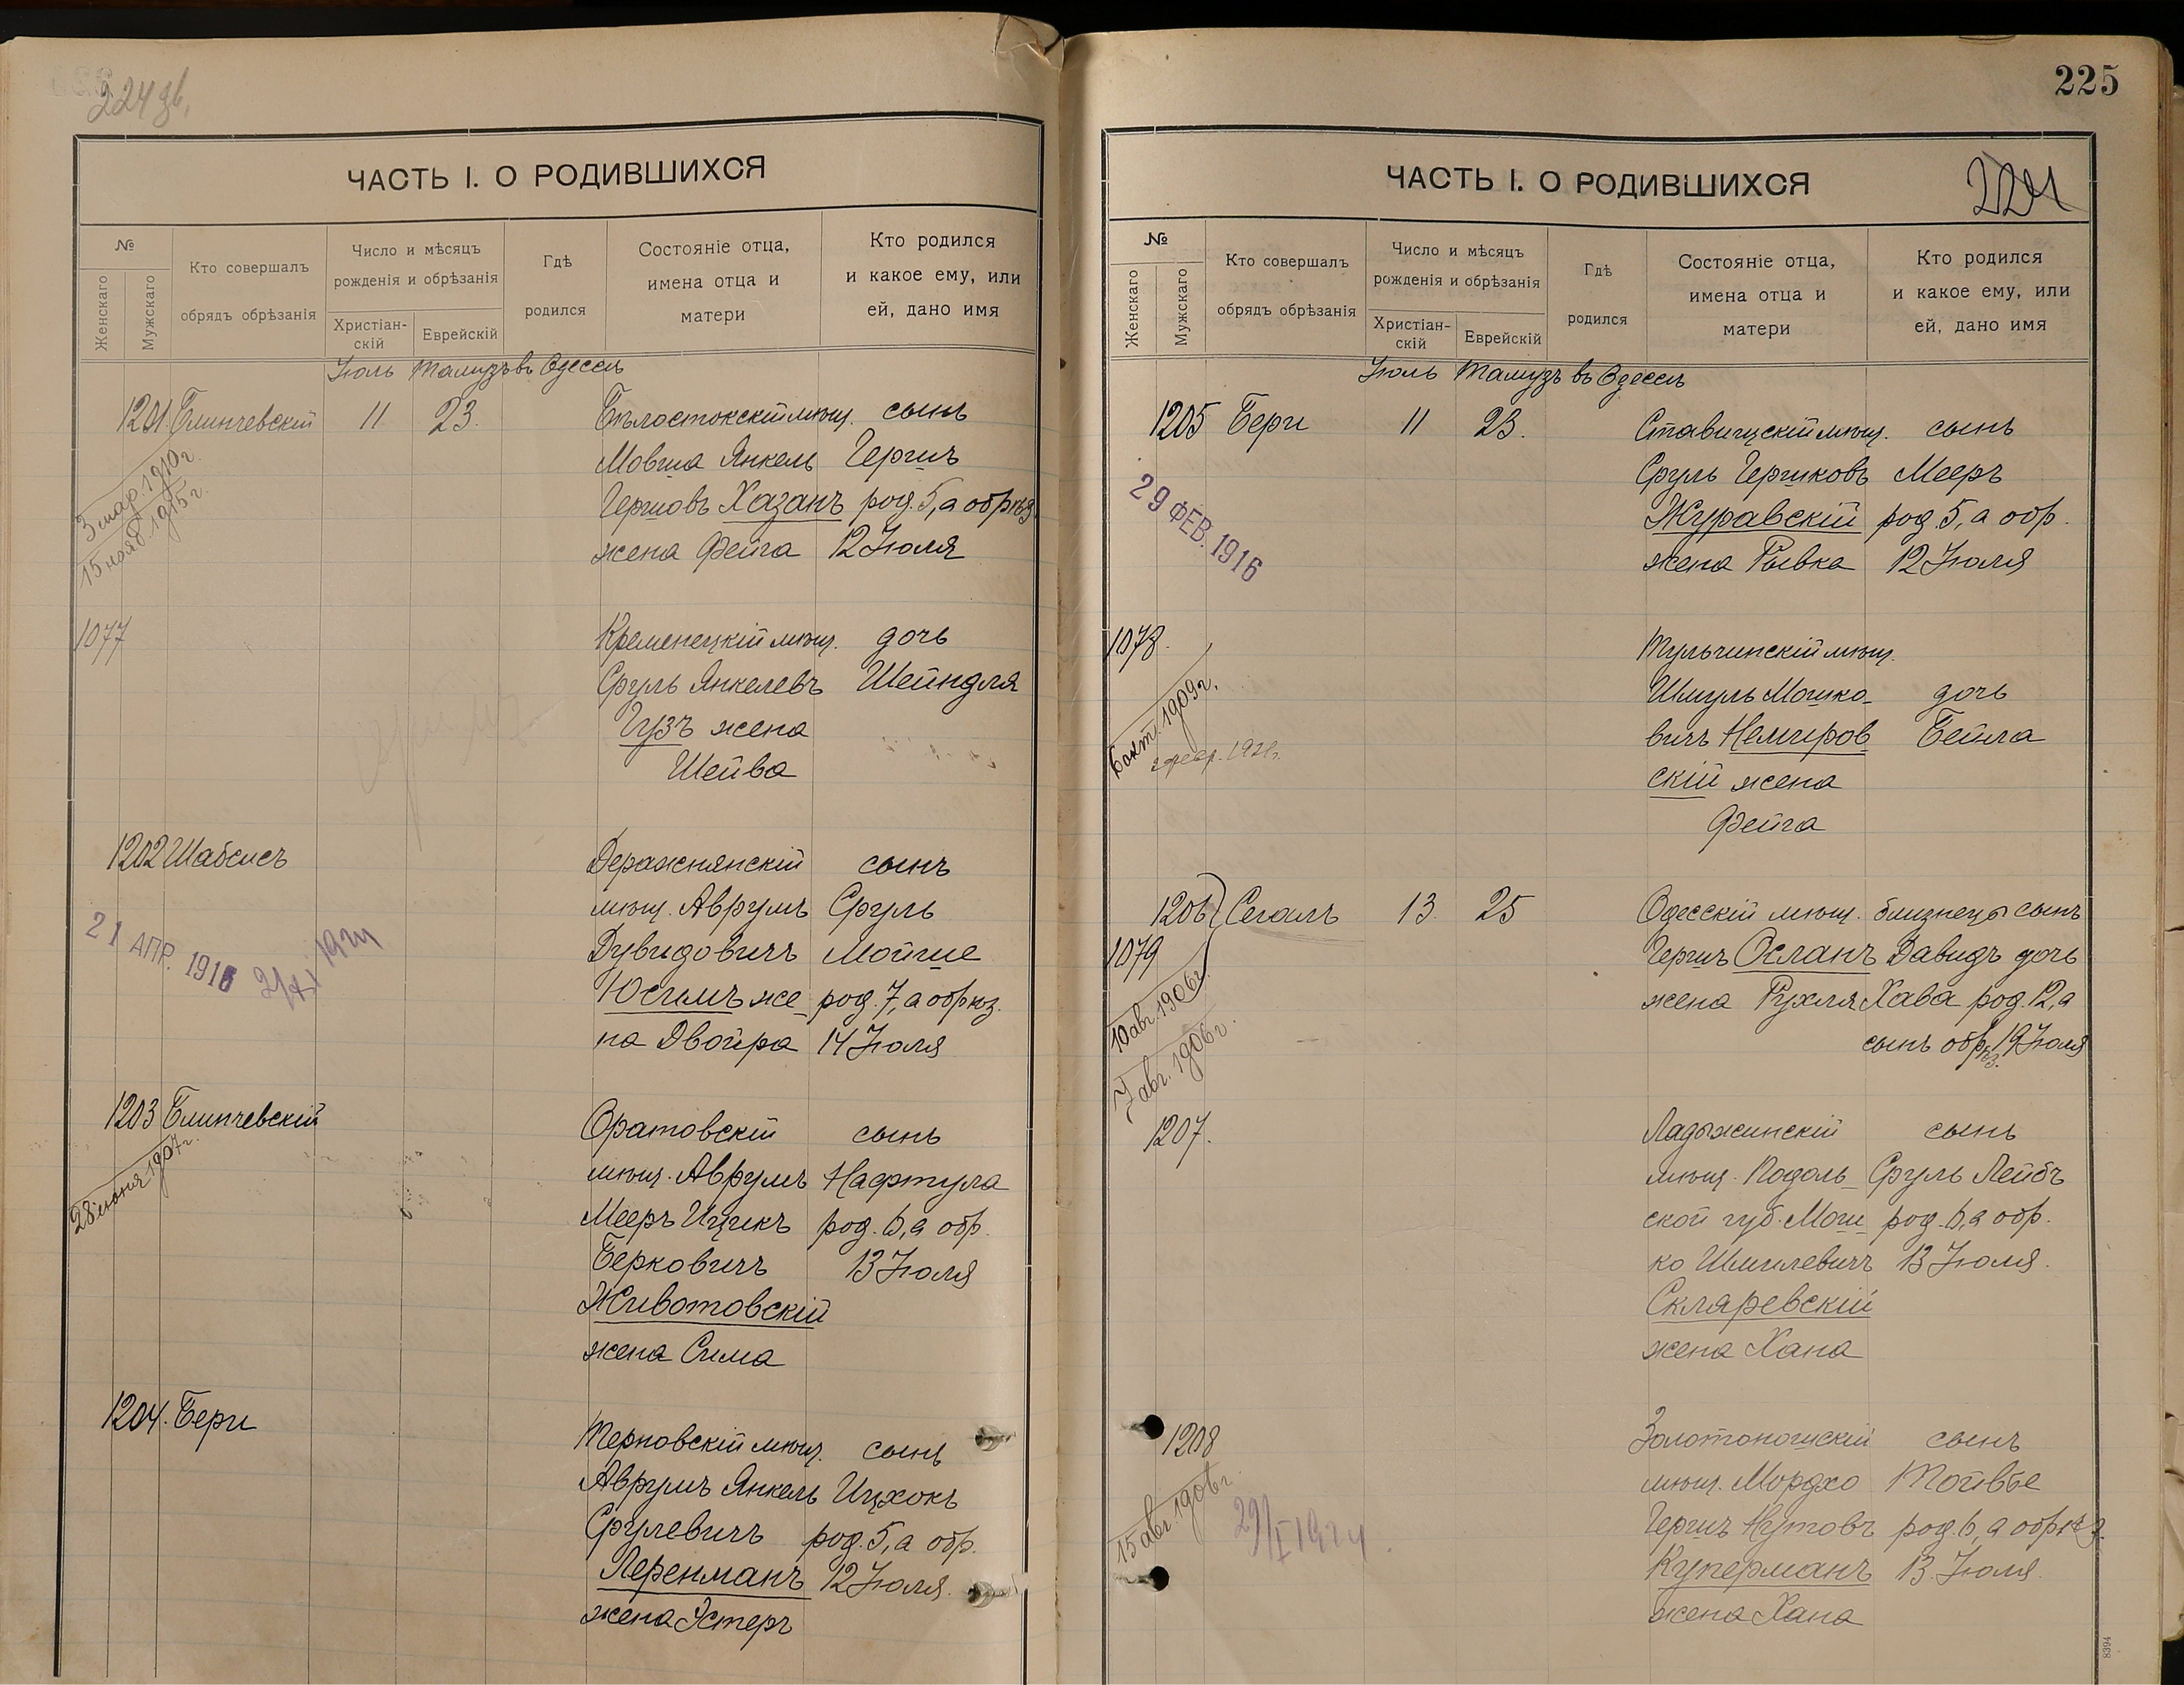 224 об.
ЧАСТЬ I. О РОДИВШИХСЯ
№
Женскаго
Мужскаго
Кто совершалъ
обрядъ обрѣзанія
Число и мѣсяцъ
рожденія и обрѣзанія
Христіан-
скій
Еврейскій
Гдѣ
родился
Состояніе отца,
имена отца и
матери
Кто родился
и какое ему, или
ей, дано имя
Іюль Тамузъ въ Одессѣ
1201 Блинчевскій 11 23. Бѣлостокскій мѣщ. сынъ
Мовша Янкель Гершъ
Гершовъ Хазанъ род. 5, а обрѣз
жена Фейга 12 Іюля
3 мар. 1910 г.
15 нояб. 1915 г.
1077 Кременецкій мѣщ. дочь
Сруль Янкелевъ Шейндля
Гузъ жена
Шейва
1202 Шабсисъ Деражнянскій сынъ
мѣщ. Аврумъ Сруль
Дувидовичъ Мойше
Юсимъ же- род. 7, а обрѣз.
на Двойра 14 Іюля
21 АПР. 1916
1924
1203 Блинчевскій Оратовскій сынъ
мѣщ. Аврумъ Нафтула
Мееръ Ицикъ род. 6, а обр.
Берковичъ 13 Іюля
Животовскій
жена Сима
28 іюня 1907 г.
1204. Бери Терновскій мѣщ. сынъ
Аврумъ Янкель Ицхокъ
Срулевичъ род. 5, а обр.
Перенманъ 12 Іюля.
жена Эстеръ
225
ЧАСТЬ I. О РОДИВШИХСЯ
224
№
Женскаго
Мужскаго
Кто совершалъ
обрядъ обрѣзанія
Число и мѣсяцъ
рожденія и обрѣзанія
Христіан-
скій
Еврейскій
Гдѣ
родился
Состояніе отца,
имена отца и
матери
Кто родился
и какое ему, или
ей, дано имя
Іюль Тамузъ въ Одессѣ
1205 Бери 11 23. Ставищскій мѣщ. сынъ
Сруль Гершковъ Мееръ
Журавскій род. 5, а обр.
жена Рывка 12 Іюля
29 ФЕВ. 1916
1078. Тульчинскій мѣщ.
Шмуль Мошко- дочь
вичъ Немиров Бейла
скій жена
Фейга
6 окт. 1909 г.
1206 Сегалъ 13. 25 Одесскій мѣщ. близнецы сынъ
1079 Гершъ Осланъ Давидъ дочь
жена Рухля Хава род. 12, а
сынъ обрѣз. 19 Іюля
10 авг. 1906 г.
7 авг. 1906 г.
1207. Ладыжинскій сынъ
мѣщ. Подоль- Сруль Лейбъ
ской губ. Мош- род. 6, а обр.
ко Шмилевичъ 13 Іюля.
Скляревскій
жена Хана
1208 Золотоношскій сынъ
мѣщ. Мордхо Тойвье
Гершъ Нутовъ род. 6, а обрѣз.
Куперманъ 13 Іюля.
жена Хана
15 авг. 1906 г.
29/I 1924.
8394